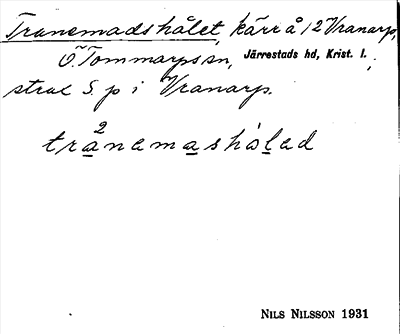 Tranemadshålet, kärr å 12 Vranarp,
Ö. Tommarps sn, Järrestads hd, Krist. l.,
strax S. p i Vranarp.
2
tranemashålad
NILS NILSSON 1931